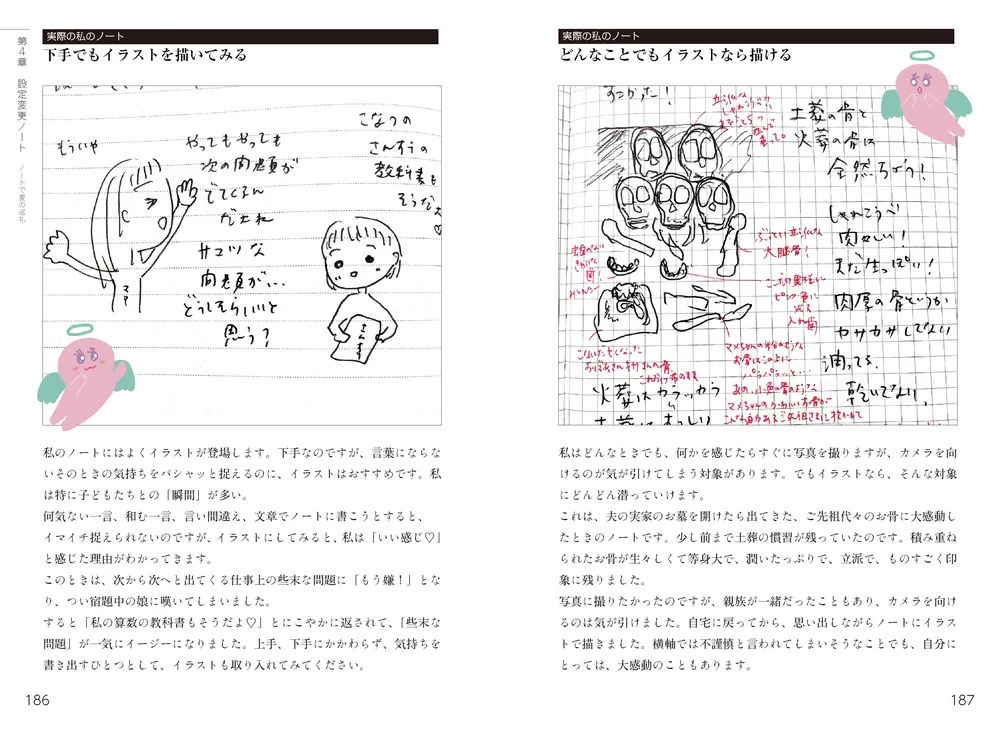 第4章 設定変更ノート ノートで愛の巡礼
実際の私のノート
下手でもイラストを描いてみる
もういや
やってもやっても
次の問題が
でてくるん
だよね
サコツな
問題が…
どうしたらいいと
思う?
こなつの
さんすうの
教科書も
そうだよ♡
ママ
さんすう
私のノートにはよくイラストが登場します。下手なのですが、言葉にならな
いそのときの気持ちをパシャッと捉えるのに、イラストはおすすめです。私
は特に子どもたちとの「瞬間」が多い。
何気ない一言、和む一言、言い間違え、文章でノートに書こうとすると、
イマイチ捉えられないのですが、イラストにしてみると、私は「いい感じ♡」
と感じた理由がわかってきます。
このときは、次から次へと出てくる仕事上の些末な問題に「もう嫌！」とな
り、つい宿題中の娘に嘆いてしまいました。
すると「私の算数の教科書もそうだよ♡」とにこやかに返されて、「些末な
問題」が一気にイージーになりました。上手、下手にかかわらず、気持ちを
書き出すひとつとして、イラストも取り入れてみてください。
186
実際の私のノート
どんなことでもイラストなら描ける
すごかった!
立派な
しゃれこうべ!!
土葬の骨と
火葬の骨は
全然ちがう!
しゃれこうべ
肉々しい!
まだ生っぽい!
肉厚の骨というか
カサカサしてない
油ってる
乾いてない、
ぶっとい立派な
大腿骨!
ピンク色に
光る
入れ歯
火葬はカラッカラ
私はどんなときでも、何かを感じたらすぐに写真を撮りますが、カメラを向
けるのが気が引けてしまう対象があります。でもイラストなら、そんな対象
にどんどん潜っていけます。
これは、夫の実家のお墓を開けたら出てきた、ご先祖代々のお骨に大感動し
たときのノートです。少し前まで土葬の慣習が残っていたのです。積み重ね
られたお骨が生々しくて等身大で、潤いたっぷりで、立派で、ものすごく印
象に残りました。
写真に撮りたかったのですが、親族が一緒だったこともあり、カメラを向け
るのは気が引けました。自宅に戻ってから、思い出しながらノートにイラス
トで描きました。横軸では不謹慎と言われてしまいそうなことでも、自分に
とっては、大感動のこともあります。
187